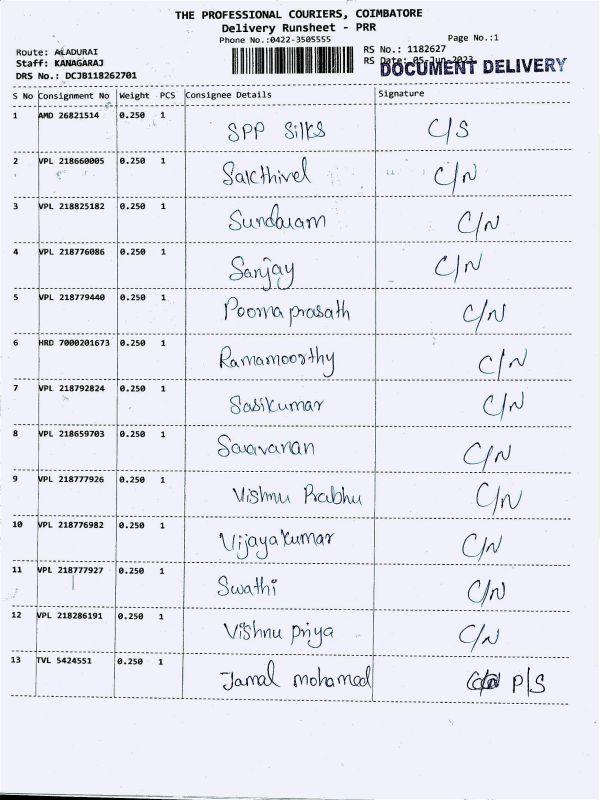 THE PROFESSIONAL COURIERS, COIMBATORE
Delivery Runsheet - PRR
Phone No.:0422-3505555
Page No.:1
Route: ALADURAI
RS No.: 1182627
Staff: KANAGARAJ
RS Date: 05-Jun-2023
DOCUMENT DELIVERY
DRS No.: DCJB118262701
S No Consignment No Weight PCS Consignee Details Signature
1 AMD 26821514 0.250 1 SPP Silks C/S
2 VPL 218660005 0.250 1 Sakthivel C/N
3 VPL 218825182 0.250 1 Sundaram C/N
4 VPL 218776086 0.250 1 Sanjay C/N
5 VPL 218779440 0.250 1 Poorna prasath C/N
6 HRD 7000201673 0.250 1 Ramamoorthy C/N
7 VPL 218792824 0.250 1 Sasikumar C/N
8 VPL 218659703 0.250 1 Saravanan C/N
9 VPL 218777926 0.250 1 Vishnu Prabhu C/N
10 VPL 218776982 0.250 1 Vijayakumar C/N
11 VPL 218777927 0.250 1 Swathi C/N
12 VPL 218286191 0.250 1 Vishnu priya C/N
13 TVL 5424551 0.250 1 Jamal mohamed P/S